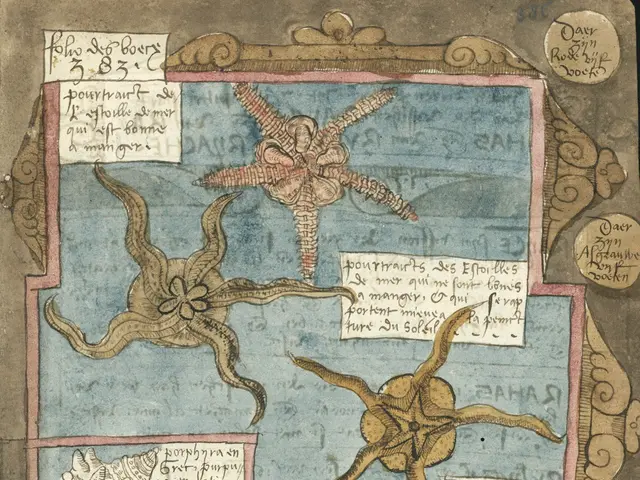 folio des boecx
3.83.
pourtraict de
l'estoille de mer
qui est bonne
a manger.
Daer
zijn
Rode vijf
voeten
Daer
zijn
Asgrauwe
vijf
voeten
pourtraicts des Estoilles
de mer qui ne sont bones
a manger, & qui se rap
portent mieux a la peinct
ture du soleil
porphyra en
Grec: purpu